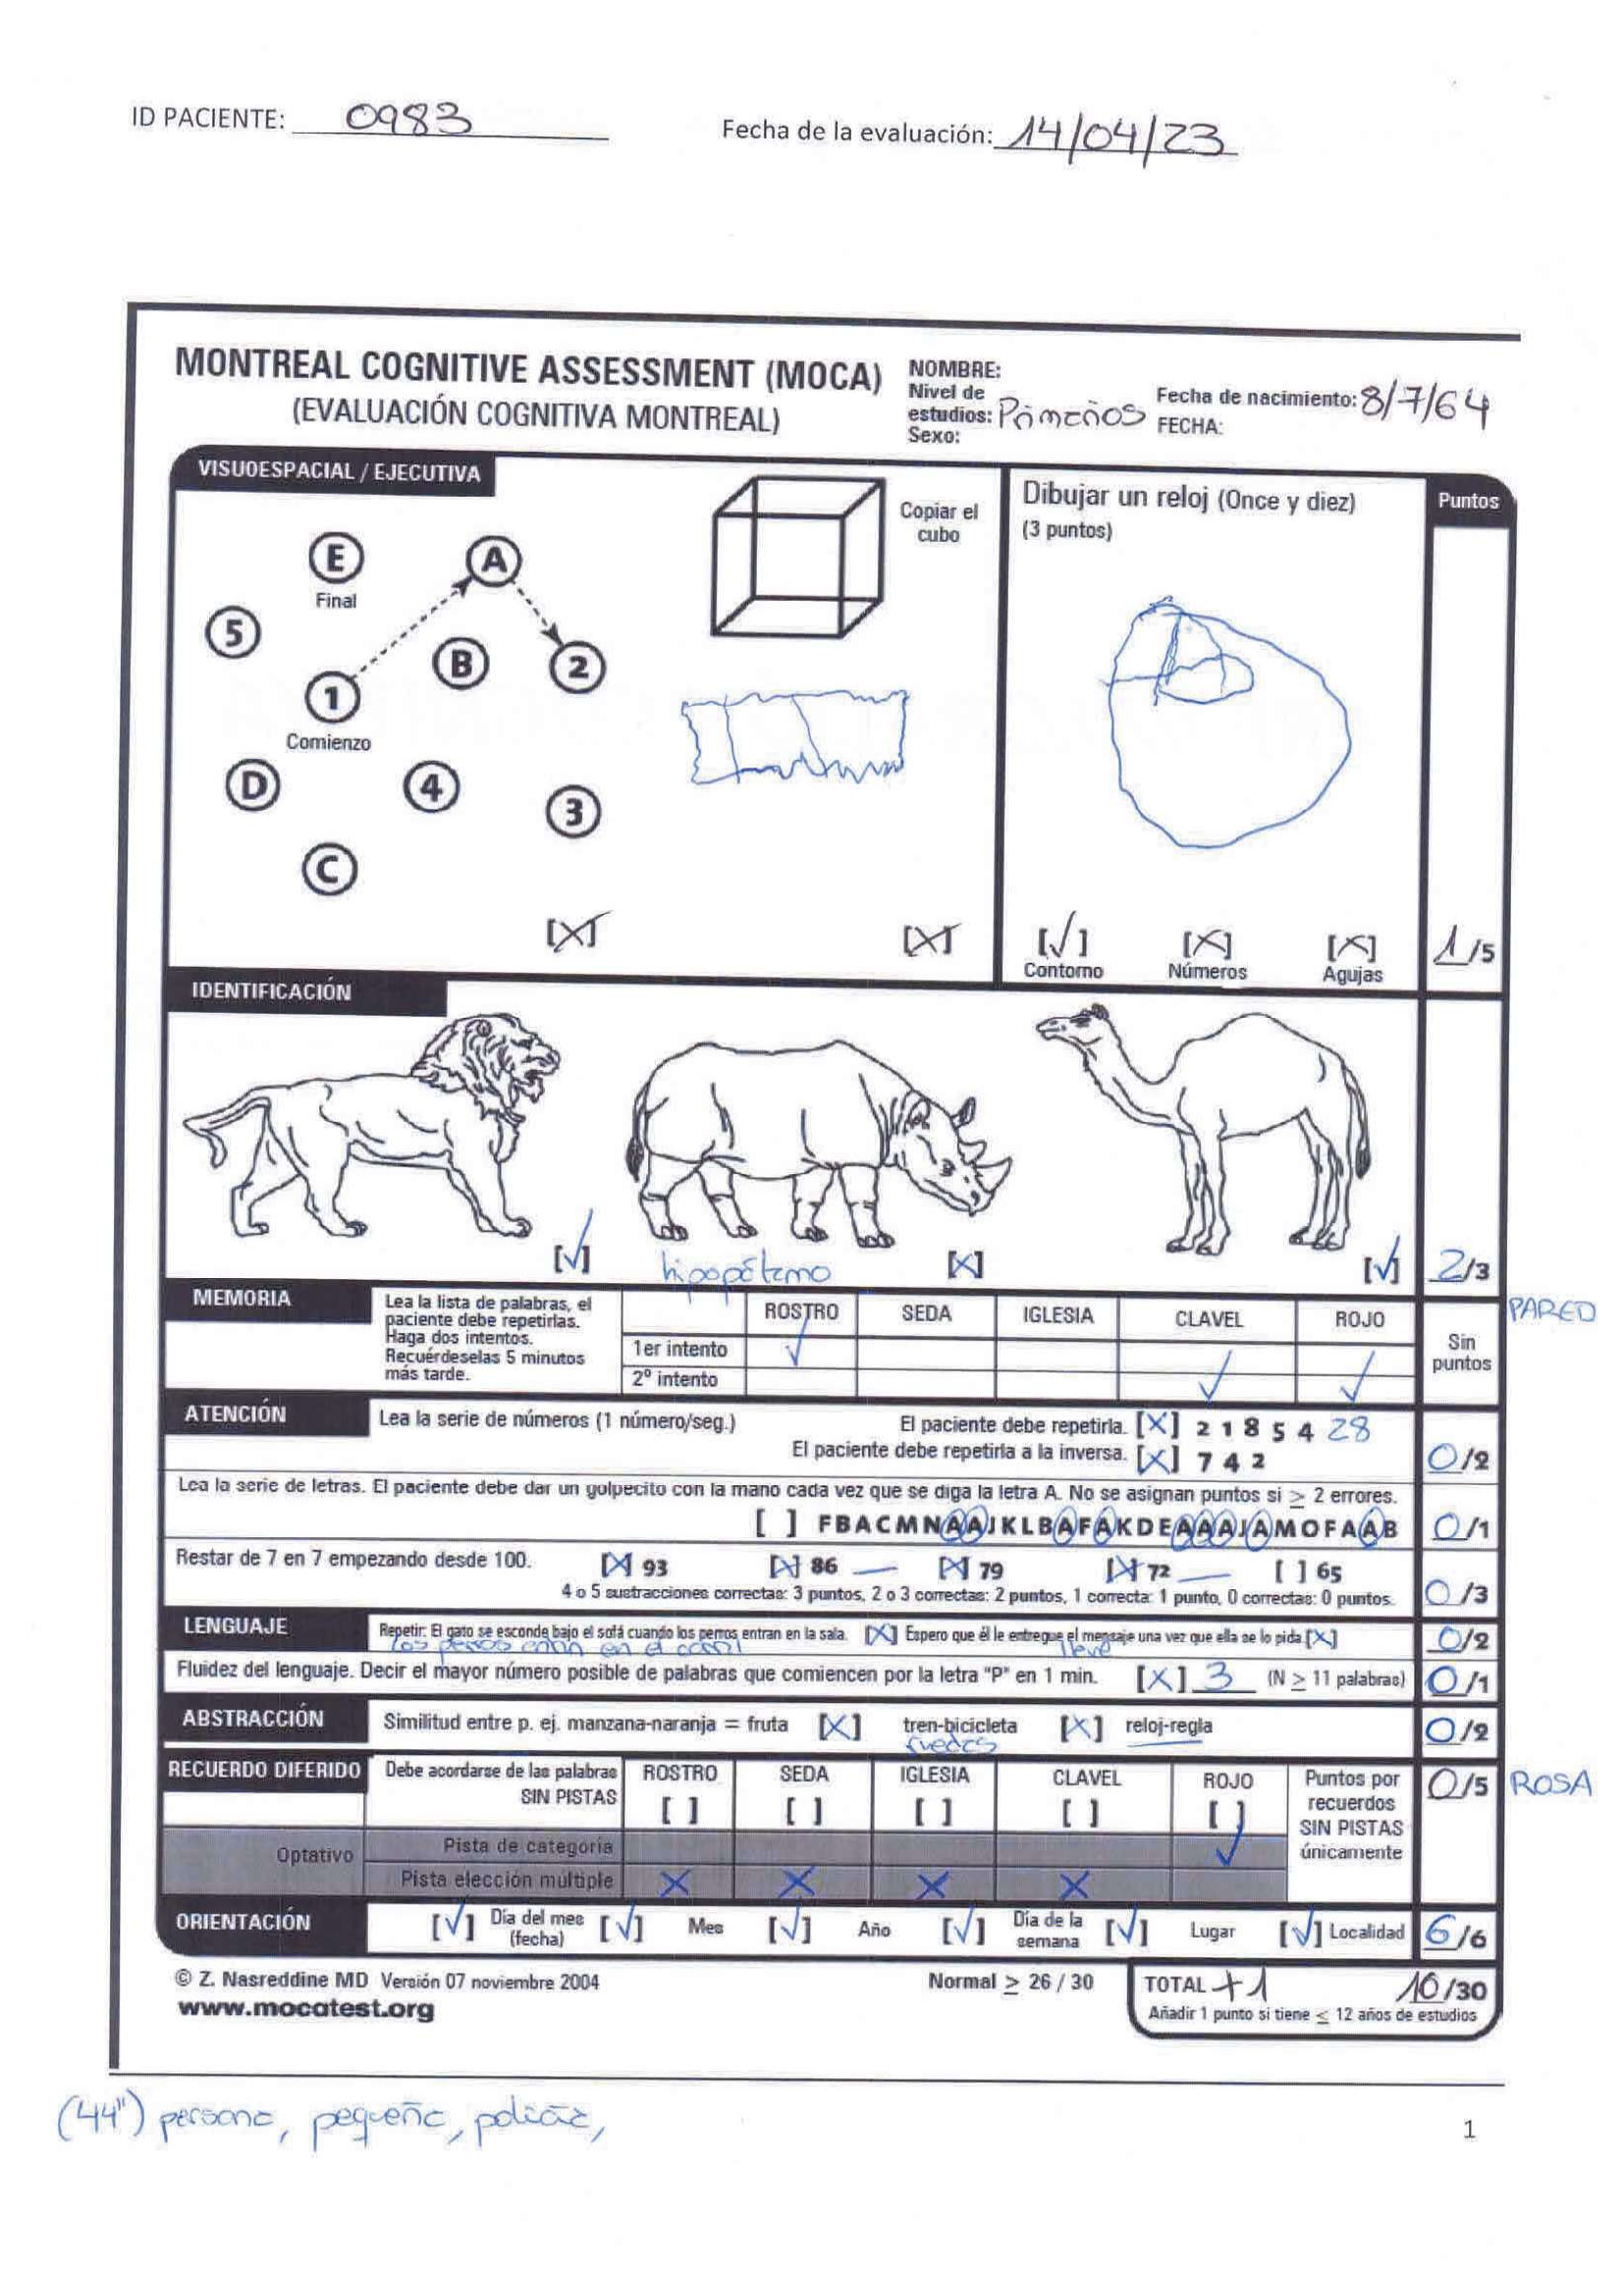 ID PACIENTE: 0983 Fecha de la evaluación: 14/04/23
MONTREAL COGNITIVE ASSESSMENT (MOCA)
(EVALUACIÓN COGNITIVA MONTREAL)
NOMBRE:
Nivel de estudios: Primarios
Sexo:
Fecha de nacimiento: 8/7/64
FECHA:
VISUOESPACIAL / EJECUTIVA
E
Final
A
5
B
2
1
Comienzo
D
4
3
C
[X]
Copiar el
cubo
[X]
Dibujar un reloj (Once y diez)
(3 puntos)
[✓] [X] [X]
Contorno Números Agujas
Puntos
1/5
IDENTIFICACIÓN
[✓] hipopótamo [X] [✓] 2/3
MEMORIA
Lea la lista de palabras, el
paciente debe repetirlas.
Haga dos intentos.
Recuérdeselas 5 minutos
más tarde.
ROSTRO SEDA IGLESIA CLAVEL ROJO
1er intento ✓
2º intento ✓ ✓
Sin
puntos
PARED
ATENCIÓN
Lea la serie de números (1 número/seg.) El paciente debe repetirla. [X] 2 1 8 5 4 28
El paciente debe repetirla a la inversa. [X] 7 4 2 0/2
Lea la serie de letras. El paciente debe dar un golpecito con la mano cada vez que se diga la letra A. No se asignan puntos si ≥ 2 errores.
[ ] FBACMNAAJKLBAFAKDEAAAJAMOFAAB 0/1
Restar de 7 en 7 empezando desde 100. [X] 93 [X] 86 — [X] 79 [X] 72 — [ ] 65
4 o 5 sustracciones correctas: 3 puntos, 2 o 3 correctas: 2 puntos, 1 correcta: 1 punto, 0 correctas: 0 puntos. 0/3
LENGUAJE
Repetir: El gato se esconde bajo el sofá cuando los perros entran en la sala. [X] Espero que él le entregue el mensaje una vez que ella se lo pida [X] 0/2
los perros en el lleve
Fluidez del lenguaje. Decir el mayor número posible de palabras que comiencen por la letra "P" en 1 min. [X] 3 (N ≥ 11 palabras) 0/1
ABSTRACCIÓN
Similitud entre p. ej. manzana-naranja = fruta [X] tren-bicicleta [X] reloj-regla 0/2
ruedas
RECUERDO DIFERIDO
Debe acordarse de las palabras
SIN PISTAS
ROSTRO SEDA IGLESIA CLAVEL ROJO
[ ] [ ] [ ] [ ] [ ]
Puntos por
recuerdos
SIN PISTAS
únicamente
0/5 ROSA
Optativo
Pista de categoría ✓
Pista elección múltiple X X X X
ORIENTACIÓN
[✓] Día del mes (fecha) [✓] Mes [✓] Año [✓] Día de la semana [✓] Lugar [✓] Localidad 6/6
© Z. Nasreddine MD Versión 07 noviembre 2004 Normal ≥ 26 / 30 TOTAL +1 10/30
www.mocatest.org Añadir 1 punto si tiene ≤ 12 años de estudios
(44") persona, pequeña, policía,
1